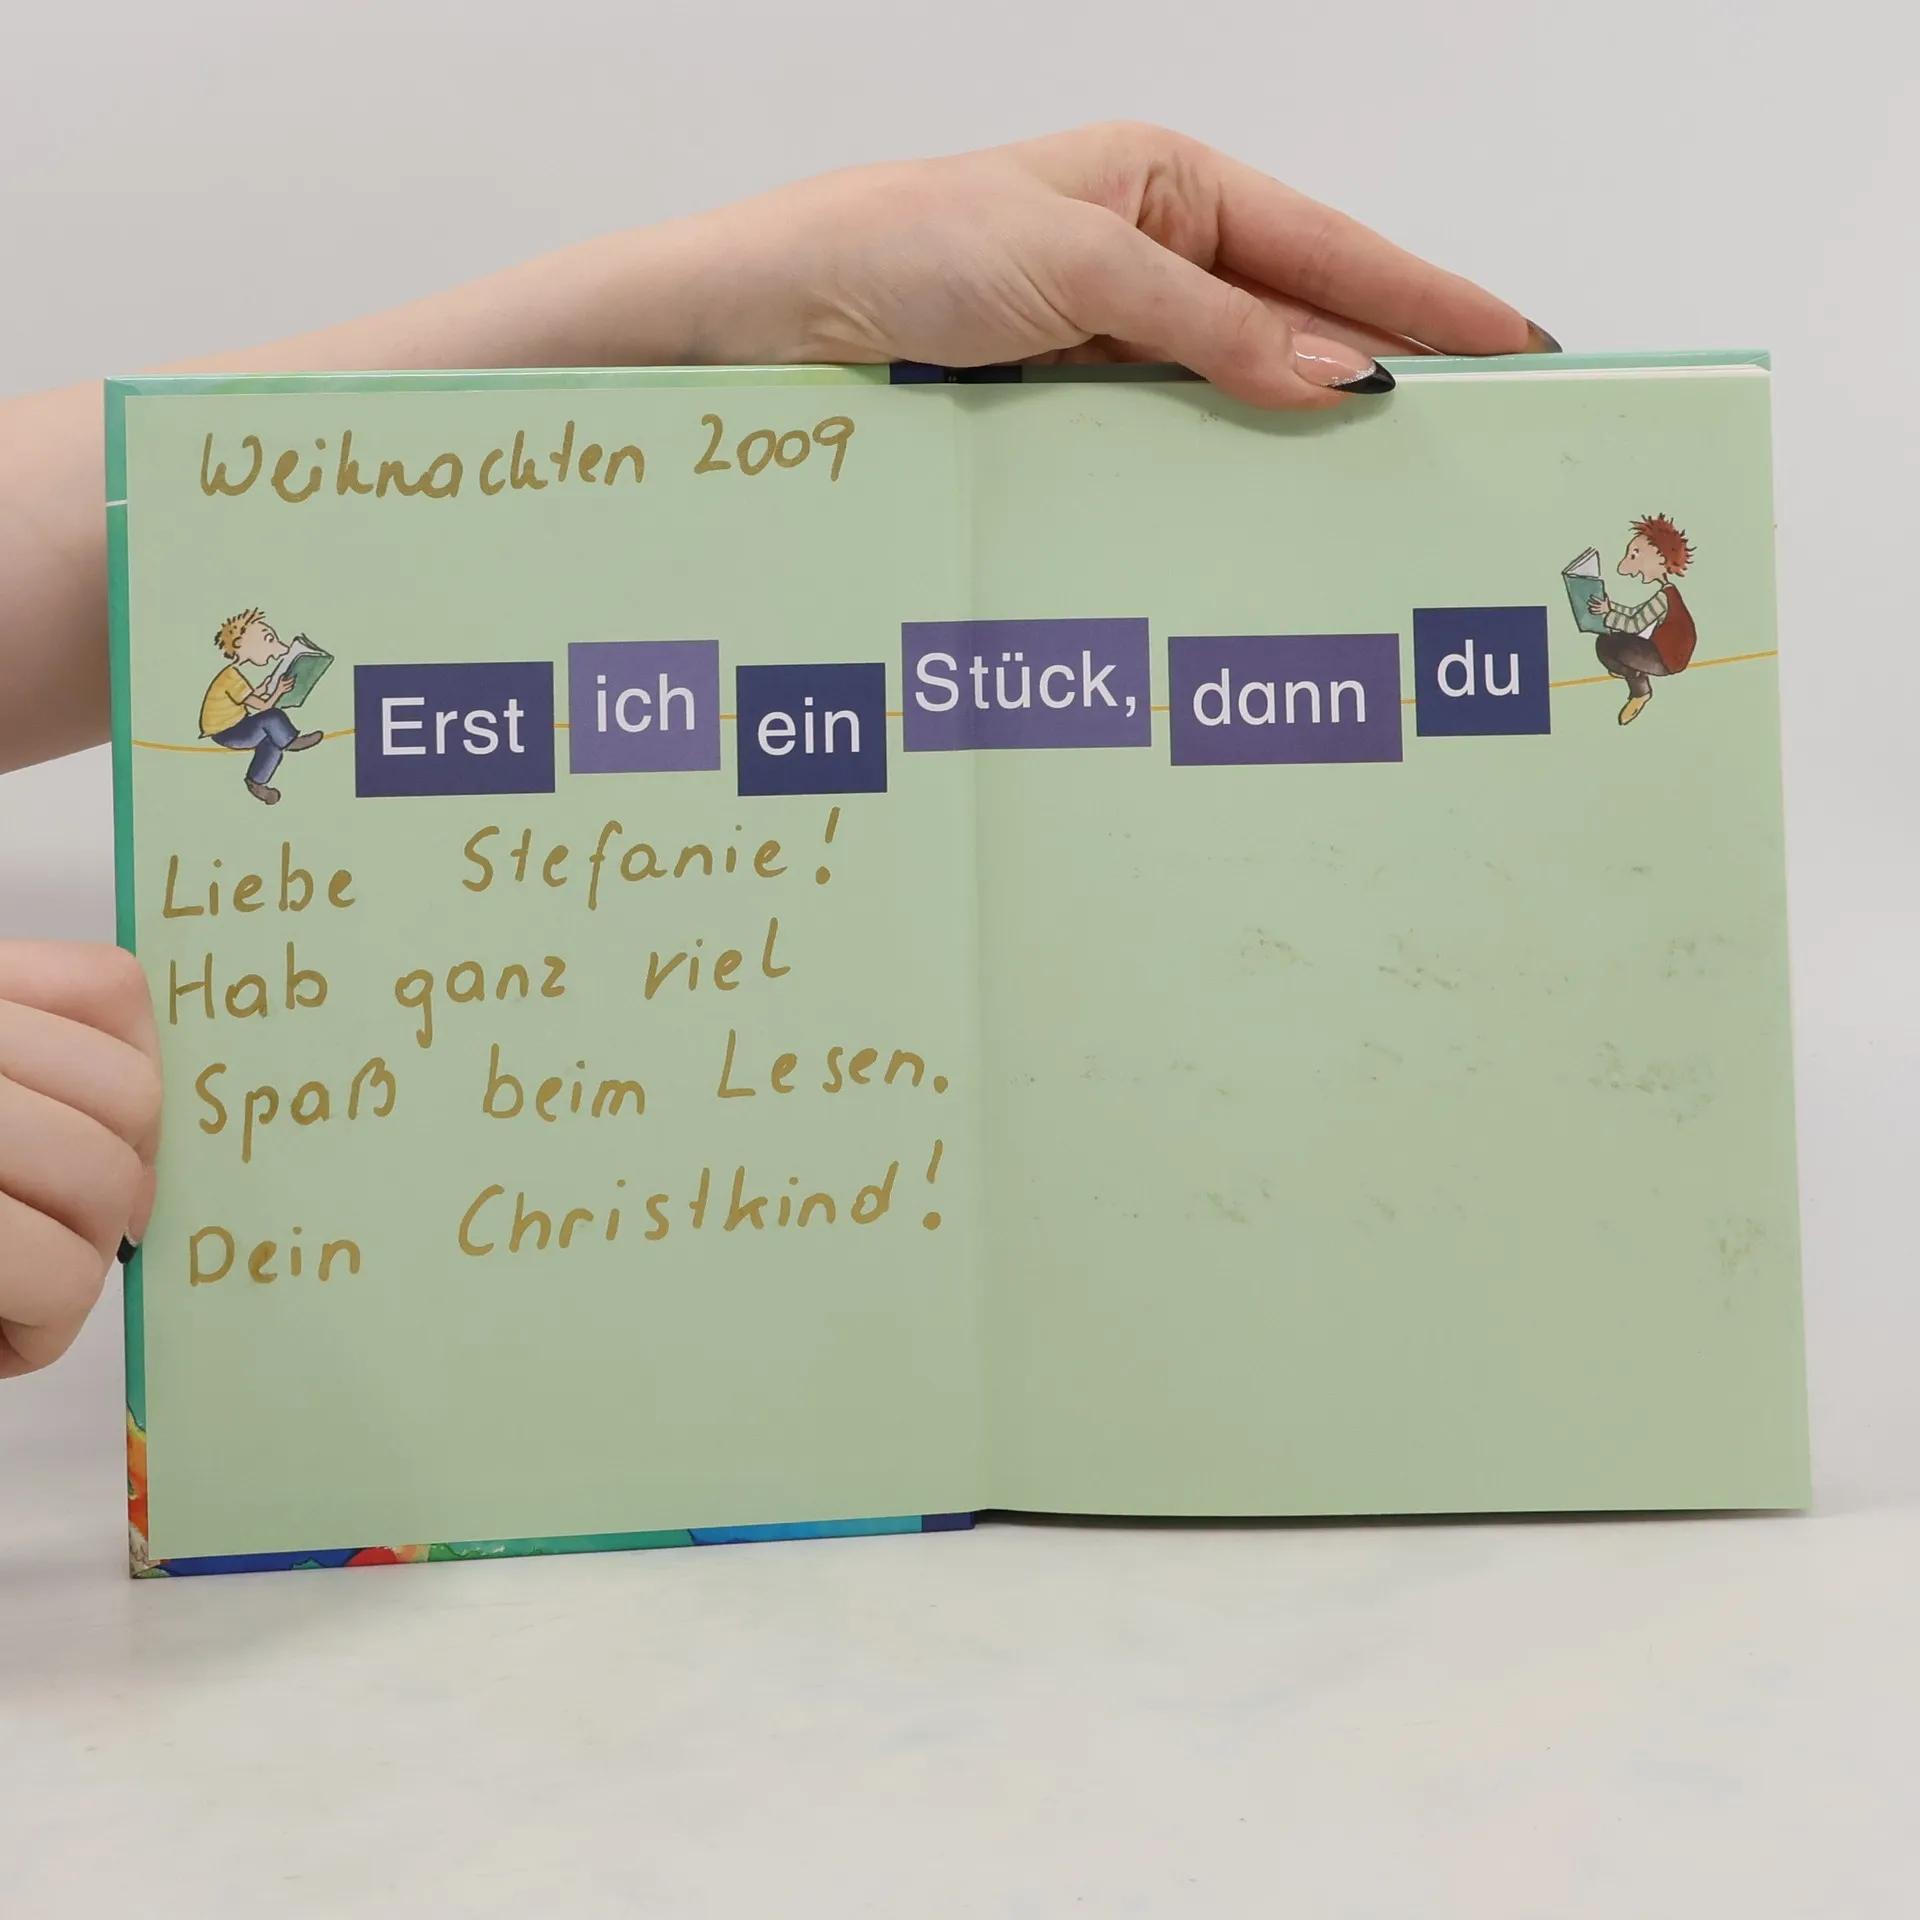 Weihnachten 2009
Erst ich ein Stück, dann du
Liebe Stefanie!
Hab ganz viel
Spaß beim Lesen.
Dein Christkind!